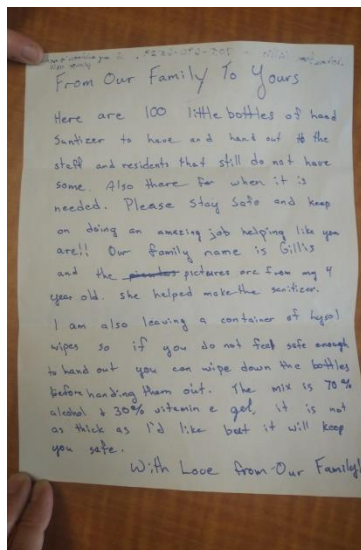 From Our Family To Yours
Here are 100 little bottles of hand
Sanitizer to have and hand out to the
staff and residents that still do not have
some. Also there for when it is
needed. Please Stay Safe and keep
on doing an amazing job helping like you
are!! Our family name is Gillis
and the pictures are from my 4
year old. she helped make the sanitizer.
I am also leaving a container of lysol
wipes so if you do not feel safe enough
to hand out you can wipe down the bottles
before handing them out. The mix is 70%
alcohol & 30% vitamin e gel, it is not
as thick as I'd like but it will keep
you safe.
With Love from Our Family!